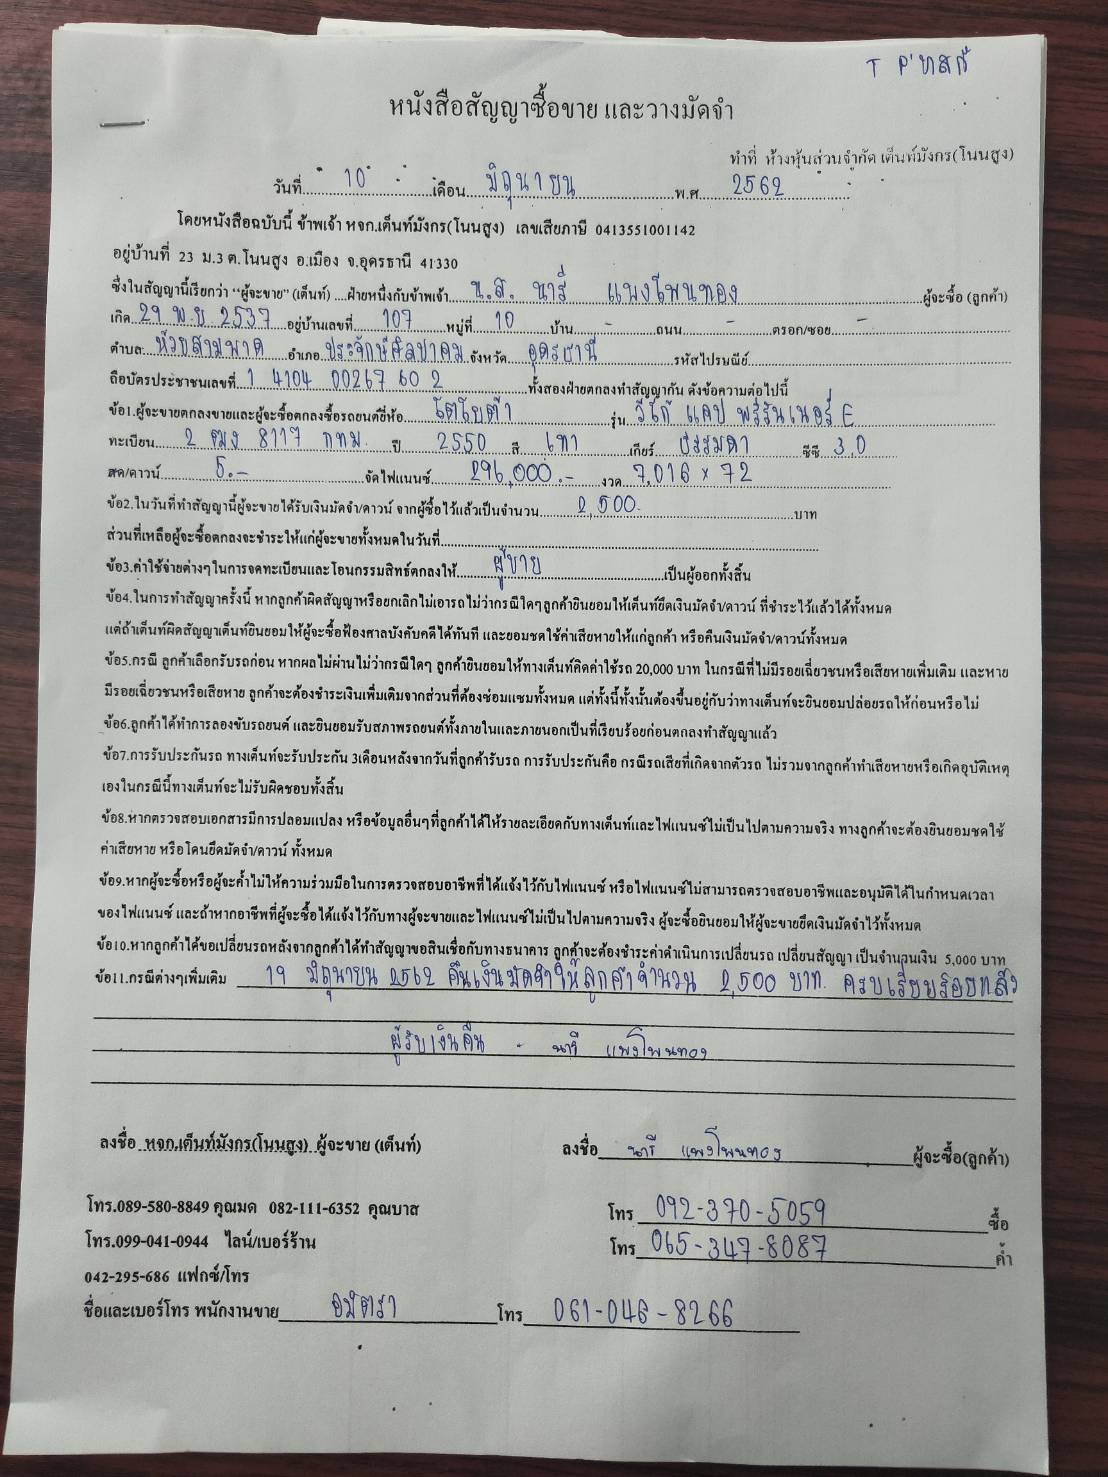 T P'ทสก์
หนังสือสัญญาซื้อขาย และวางมัดจำ
ทำที่ ห้างหุ้นส่วนจำกัด เต็นท์มังกร(โนนสูง)
วันที่ 10 เดือน มิถุนายน พ.ศ 2562
โดยหนังสือฉบับนี้ ข้าพเจ้า หจก.เต็นท์มังกร(โนนสูง) เลขเสียภาษี 0413551001142
อยู่บ้านที่ 23 ม.3 ต.โนนสูง อ.เมือง จ.อุดรธานี 41330
ซึ่งในสัญญานี้เรียกว่า "ผู้จะขาย" (เต็นท์) ....ฝ่ายหนึ่งกับข้าพเจ้า น.ส. นารี แพงโพนทอง ผู้จะซื้อ (ลูกค้า)
เกิด 29 พ.ย. 2537 อยู่บ้านเลขที่ 107 หมู่ที่ 10 บ้าน - ถนน - ตรอก/ซอย -
ตำบล ห้วยสามพาด อำเภอ ประจักษ์ศิลปาคม จังหวัด อุดรธานี รหัสไปรษณีย์
ถือบัตรประชาชนเลขที่ 1 4104 00267 60 2 ทั้งสองฝ่ายตกลงทำสัญญากัน ดังข้อความต่อไปนี้
ข้อ1.ผู้จะขายตกลงขายและผู้จะซื้อตกลงซื้อรถยนต์ยี่ห้อ โตโยต้า รุ่น วีโก้ แคป พรีรันเนอร์ E
ทะเบียน 2 ฒง 8117 กทม. ปี 2550 สี เทา เกียร์ ธรรมดา ซีซี 3.0
สด/ดาวน์ 5.- จัดไฟแนนซ์ 296,000.- งวด 7,016 x 72
ข้อ2.ในวันที่ทำสัญญานี้ผู้จะขายได้รับเงินมัดจำ/ดาวน์ จากผู้ซื้อไว้แล้วเป็นจำนวน 2,500 บาท
ส่วนที่เหลือผู้จะซื้อตกลงจะชำระให้แก่ผู้จะขายทั้งหมดในวันที่
ข้อ3.ค่าใช้จ่ายต่างๆในการจดทะเบียนและโอนกรรมสิทธ์ตกลงให้ ผู้ขาย เป็นผู้ออกทั้งสิ้น
ข้อ4.ในการทำสัญญาครั้งนี้ หากลูกค้าผิดสัญญาหรือยกเลิกไม่เอารถไม่ว่ากรณีใดๆลูกค้ายินยอมให้เต็นท์ยึดเงินมัดจำ/ดาวน์ ที่ชำระไว้แล้วได้ทั้งหมด
แต่ถ้าเต็นท์ผิดสัญญาเต็นท์ยินยอมให้ผู้จะซื้อฟ้องศาลบังคับคดีได้ทันที และยอมชดใช้ค่าเสียหายให้แก่ลูกค้า หรือคืนเงินมัดจำ/ดาวน์ทั้งหมด
ข้อ5.กรณี ลูกค้าเลือกรับรถก่อน หากผลไม่ผ่านไม่ว่ากรณีใดๆ ลูกค้ายินยอมให้ทางเต็นท์คิดค่าใช้รถ 20,000 บาท ในกรณีที่ไม่มีรอยเฉี่ยวชนหรือเสียหายเพิ่มเติม และหาย
มีรอยเฉี่ยวชนหรือเสียหาย ลูกค้าจะต้องชำระเงินเพิ่มเติมจากส่วนที่ต้องซ่อมแซมทั้งหมด แต่ทั้งนี้ทั้งนั้นต้องขึ้นอยู่กับว่าทางเต็นท์จะยินยอมปล่อยรถให้ก่อนหรือไม่
ข้อ6.ลูกค้าได้ทำการลองขับรถยนต์ และยินยอมรับสภาพรถยนต์ทั้งภายในและภายนอกเป็นที่เรียบร้อยก่อนตกลงทำสัญญาแล้ว
ข้อ7.การรับประกันรถ ทางเต็นท์จะรับประกัน 3เดือนหลังจากวันที่ลูกค้ารับรถ การรับประกันคือ กรณีรถเสียที่เกิดจากตัวรถ ไม่รวมจากลูกค้าทำเสียหายหรือเกิดอุบัติเหตุ
เองในกรณีนี้ทางเต็นท์จะไม่รับผิดชอบทั้งสิ้น
ข้อ8.หากตรวจสอบเอกสารมีการปลอมแปลง หรือข้อมูลอื่นๆที่ลูกค้าได้ให้รายละเอียดกับทางเต็นท์และไฟแนนซ์ไม่เป็นไปตามความจริง ทางลูกค้าจะต้องยินยอมชดใช้
ค่าเสียหาย หรือโดนยึดมัดจำ/ดาวน์ ทั้งหมด
ข้อ9.หากผู้จะซื้อหรือผู้จะค้ำไม่ให้ความร่วมมือในการตรวจสอบอาชีพที่ได้แจ้งไว้กับไฟแนนซ์ หรือไฟแนนซ์ไม่สามารถตรวจสอบอาชีพและอนุมัติได้ในกำหนดเวลา
ของไฟแนนซ์ และถ้าหากอาชีพที่ผู้จะซื้อได้แจ้งไว้กับทางผู้จะขายและไฟแนนซ์ไม่เป็นไปตามความจริง ผู้จะซื้อยินยอมให้ผู้จะขายยึดเงินมัดจำไว้ทั้งหมด
ข้อ10.หากลูกค้าได้ขอเปลี่ยนรถหลังจากลูกค้าได้ทำสัญญาขอสินเชื่อกับทางธนาคาร ลูกค้าจะต้องชำระค่าดำเนินการเปลี่ยนรถ เปลี่ยนสัญญา เป็นจำนวนเงิน 5,000 บาท
ข้อ11.กรณีต่างๆเพิ่มเติม 19 มิถุนายน 2562 คืนเงินมัดจำให้ลูกค้าจำนวน 2,500 บาท. ครบเรียบร้อยแล้ว
ผู้รับเงินคืน - นารี แพงโพนทอง
ลงชื่อ หจก.เต็นท์มังกร(โนนสูง) ผู้จะขาย (เต็นท์) ลงชื่อ นารี แพงโพนทอง ผู้จะซื้อ(ลูกค้า)
โทร.089-580-8849 คุณมด 082-111-6352 คุณบาส โทร 092-370-5059 ซื้อ
โทร.099-041-0944 ไลน์/เบอร์ร้าน โทร 065-347-8087 ค้ำ
042-295-686 แฟกซ์/โทร
ชื่อและเบอร์โทร พนักงานขาย อมิตรา โทร 061-046-8266